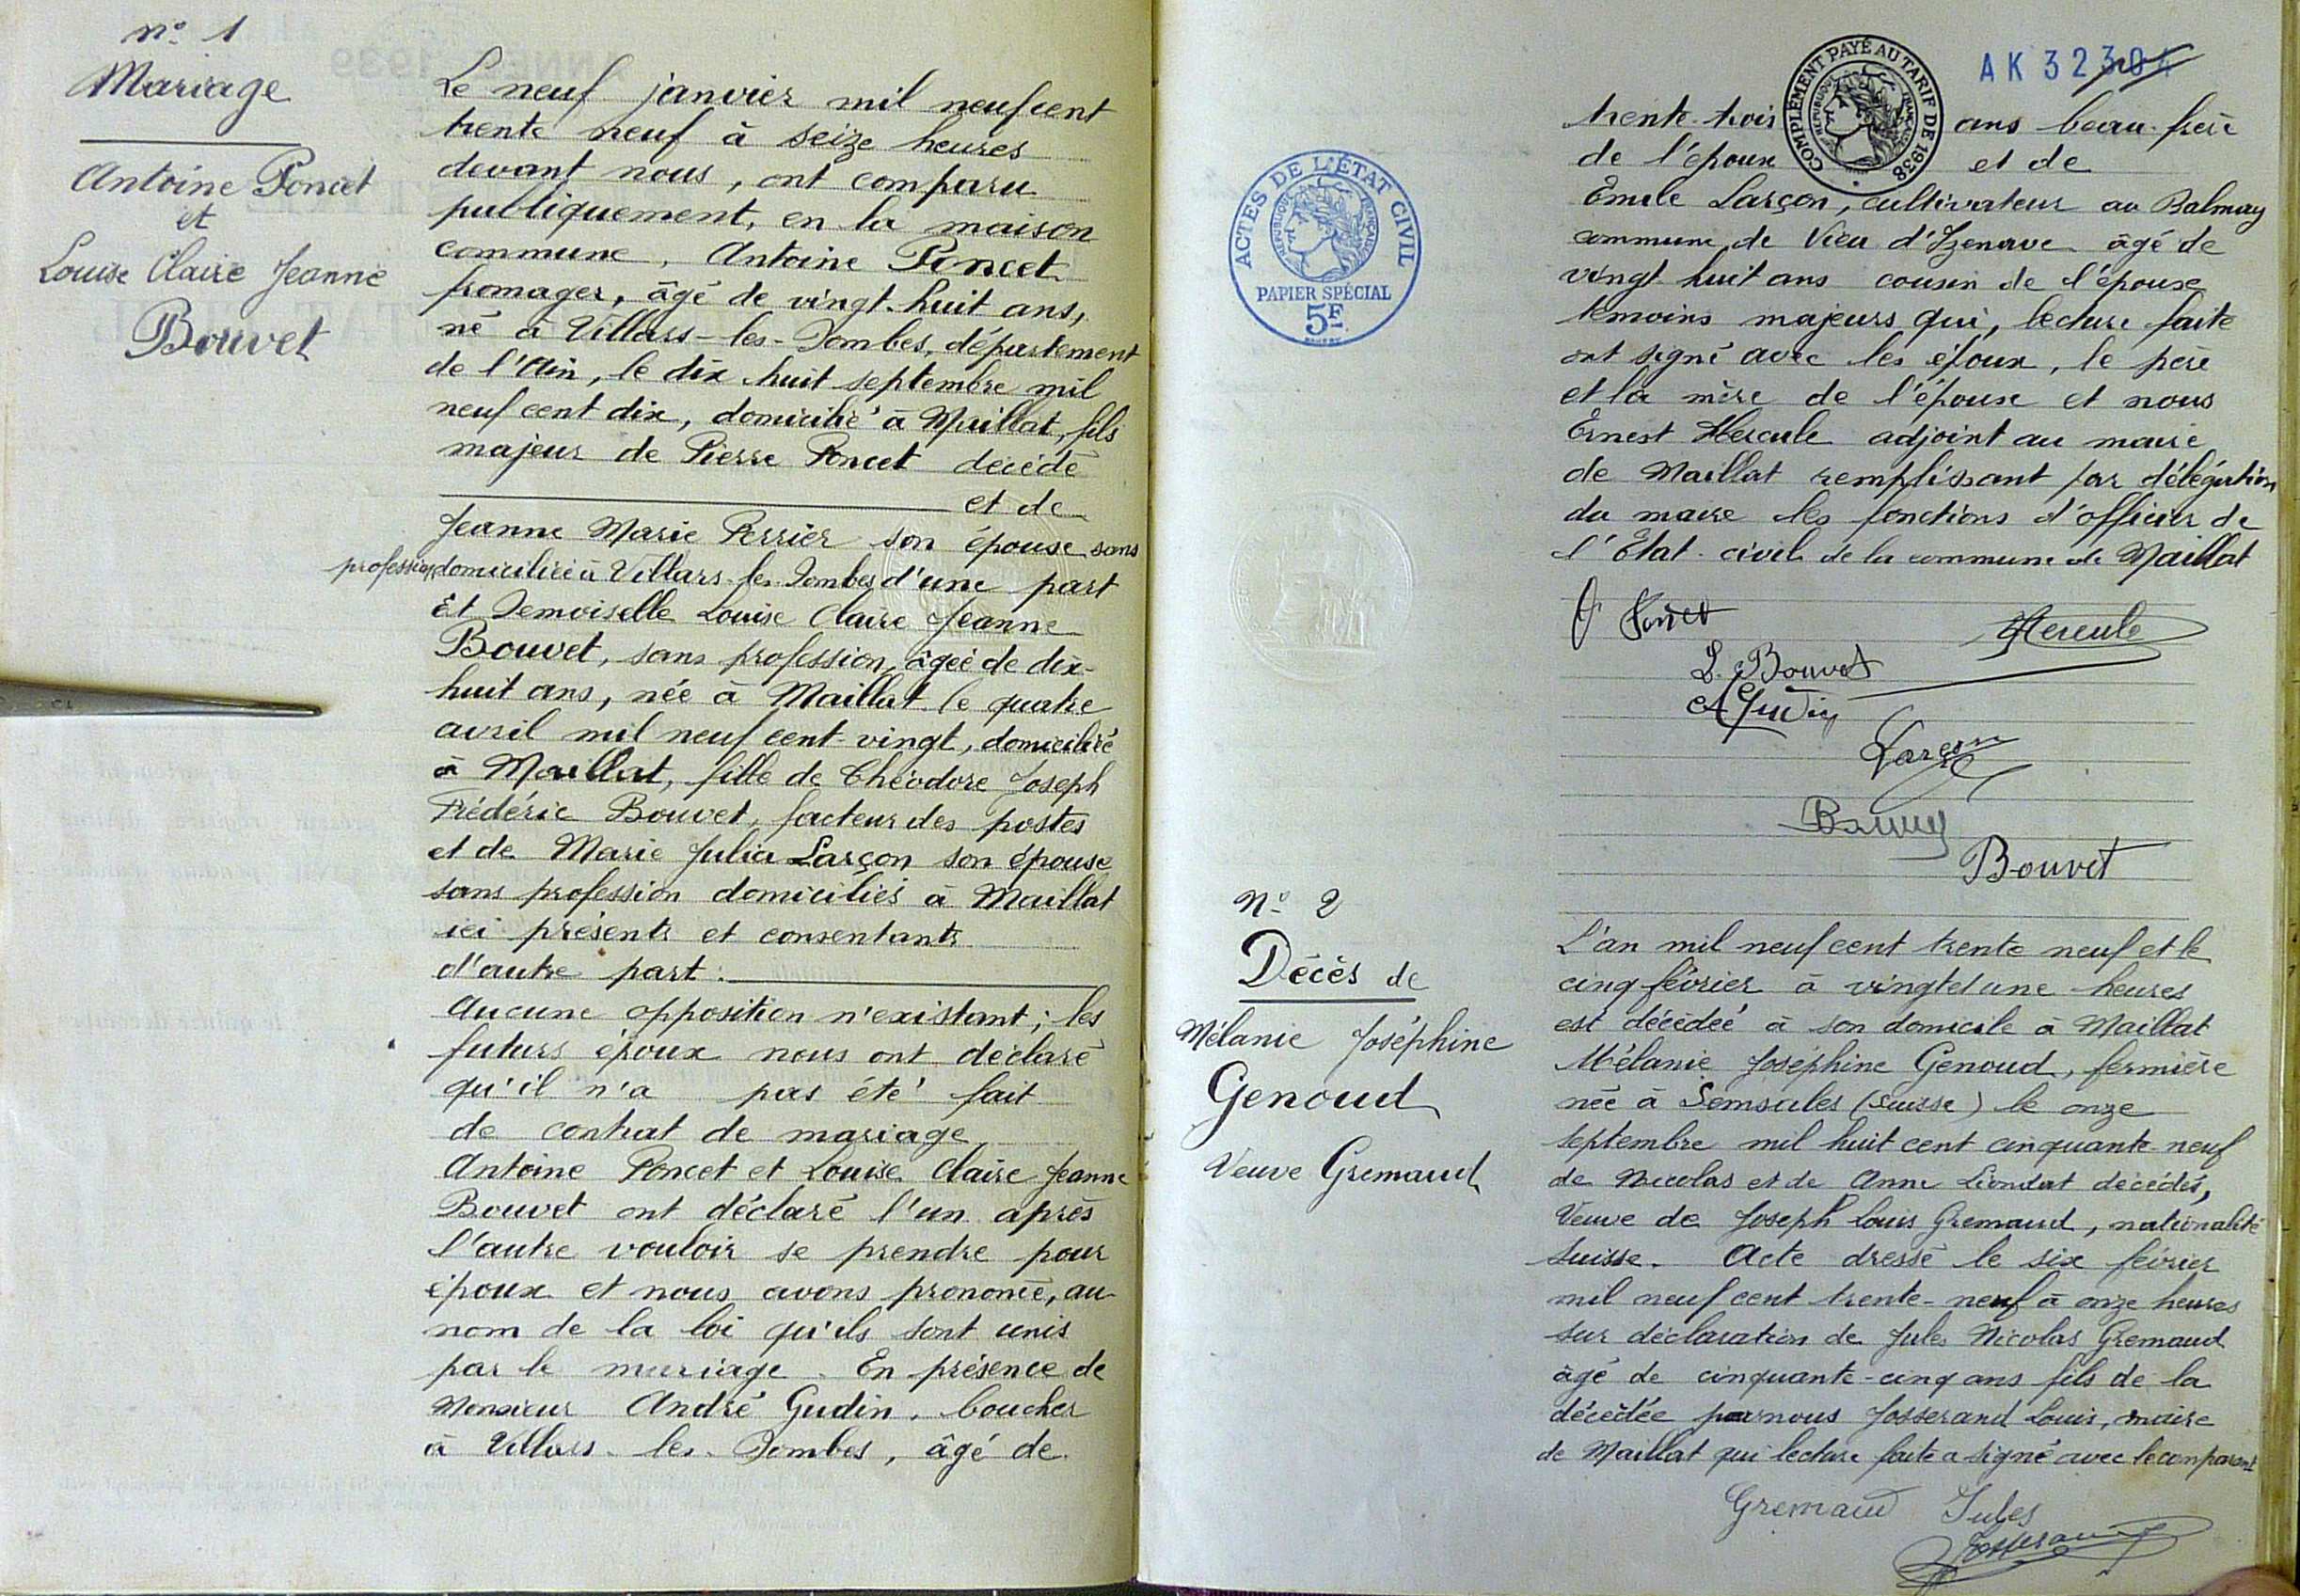 n° 1
Mariage
Antoine Poncet
et
Louise Claire Jeanne
Bouvet
Le neuf janvier mil neuf cent
trente neuf à seize heures
devant nous, ont comparu
publiquement, en la maison
commune, Antoine Poncet
fromager, âgé de vingt-huit ans,
né à Villars-les-Dombes, département
de l'Ain, le dix huit septembre mil
neuf cent dix, domicilié à Maillat, fils
majeur de Pierre Poncet décédé
et de
Jeanne Marie Perrier son épouse sans
profession domiciliée à Villars-les-Dombes d'une part
Et Demoiselle Louise Claire Jeanne
Bouvet, sans profession, âgée de dix-
huit ans, née à Maillat le quatre
avril mil neuf cent vingt, domiciliée
à Maillat, fille de Théodore Joseph
Frédéric Bouvet, facteur des postes
et de Marie Julia Larçon son épouse
sans profession domiciliés à Maillat
ici présents et consentants
d'autre part.
Aucune opposition n'existant; les
futurs époux nous ont déclaré
qu'il n'a pas été fait
de contrat de mariage
Antoine Poncet et Louise Claire Jeanne
Bouvet ont déclaré l'un après
l'autre vouloir se prendre pour
époux et nous avons prononcé, au
nom de la loi qu'ils sont unis
par le mariage. En présence de
Monsieur André Gudin, boucher
à Villars-les-Dombes, âgé de
ACTES DE L'ÉTAT CIVIL
RÉPUBLIQUE FRANÇAISE
PAPIER SPÉCIAL
5F
COMPLÉMENT PAYÉ AU TARIF DE 1938
RÉPUBLIQUE FRANÇAISE
AK 32304
trente-trois ans beau-frère
de l'époux et de
Emile Larçon, cultivateur au Balmay
commune de Vieu d'Izenave âgé de
vingt-huit ans cousin de l'épouse
témoins majeurs qui, lecture faite
ont signé avec les époux, le père
et la mère de l'épouse et nous
Ernest Hercule adjoint au maire
de Maillat remplissant par délégation
du maire les fonctions d'officier de
l'Etat-civil de la commune de Maillat
Poncet
Hercule
L. Bouvet
A Gudin
Larçon
Bouvet
N° 2
Décès de
Mélanie Joséphine
Genoud
Veuve Gremaud
L'an mil neuf cent trente neuf et le
cinq février à vingt et une heures
est décédée à son domicile à Maillat
Mélanie Joséphine Genoud, fermière
née à Semsales (Suisse) le onze
septembre mil huit cent cinquante-neuf
de Nicolas et de Anne Liondat décédés,
Veuve de Joseph Louis Gremaud, nationalité
Suisse. Acte dressé le six février
mil neuf cent trente-neuf à onze heures
sur déclaration de Jules Nicolas Gremaud
âgé de cinquante-cinq ans fils de la
décédée par nous Josserand Louis, maire
de Maillat qui lecture faite a signé avec le comparant
Gremaud Jules
Josserand